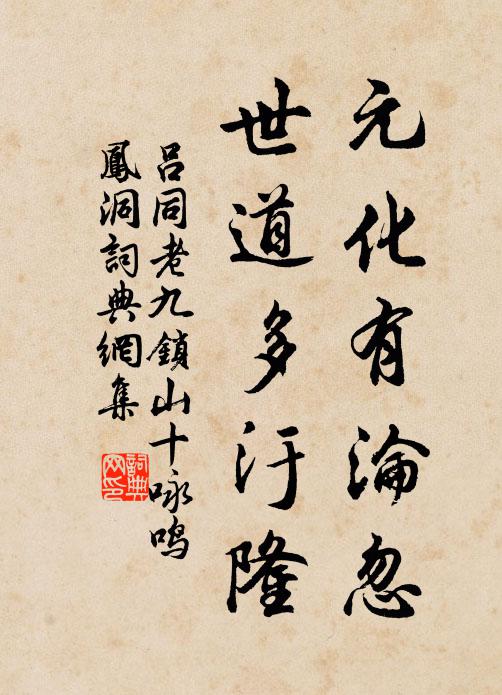 元化有淪忽
世道多汙隆
呂同老九鎖山十咏鸣
鳳洞詞典網集
詞典
网印